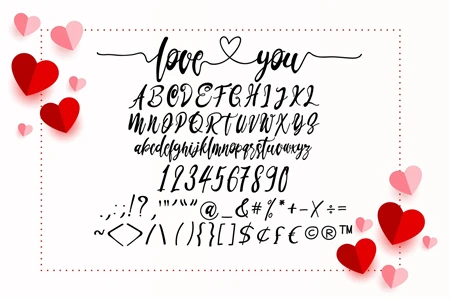 love you
ABCDEFGHIJKL
MNOPQRSTUVWXYZ
abcdefghijklmnopqrstuvwxyz
1234567890
.,:;!?,'"'"“”@_&#%*+-×÷=
~<>/\(){}[]$¢£€©®™